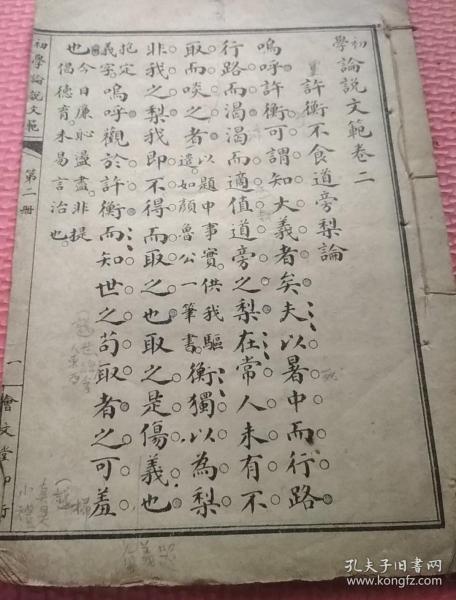 初學論說文範卷二
許衡不食道旁梨論
嗚呼許衡可謂知大義者矣夫以暑中而行路
行路而渴渴而適值道旁之梨在常人未有不
取而啖之者以題中事實供我驅遣如顏魯公一筆書衡獨以為梨
非我之梨我即不得而取之也取之是傷義也
抱定義字嗚呼觀於許衡而知世之苟取者之可羞
也今日廉恥盡喪非提倡德育未易言治也
初學論說文範
第二冊
一
會文堂印行
孔夫子旧书网
www.kongfz.com